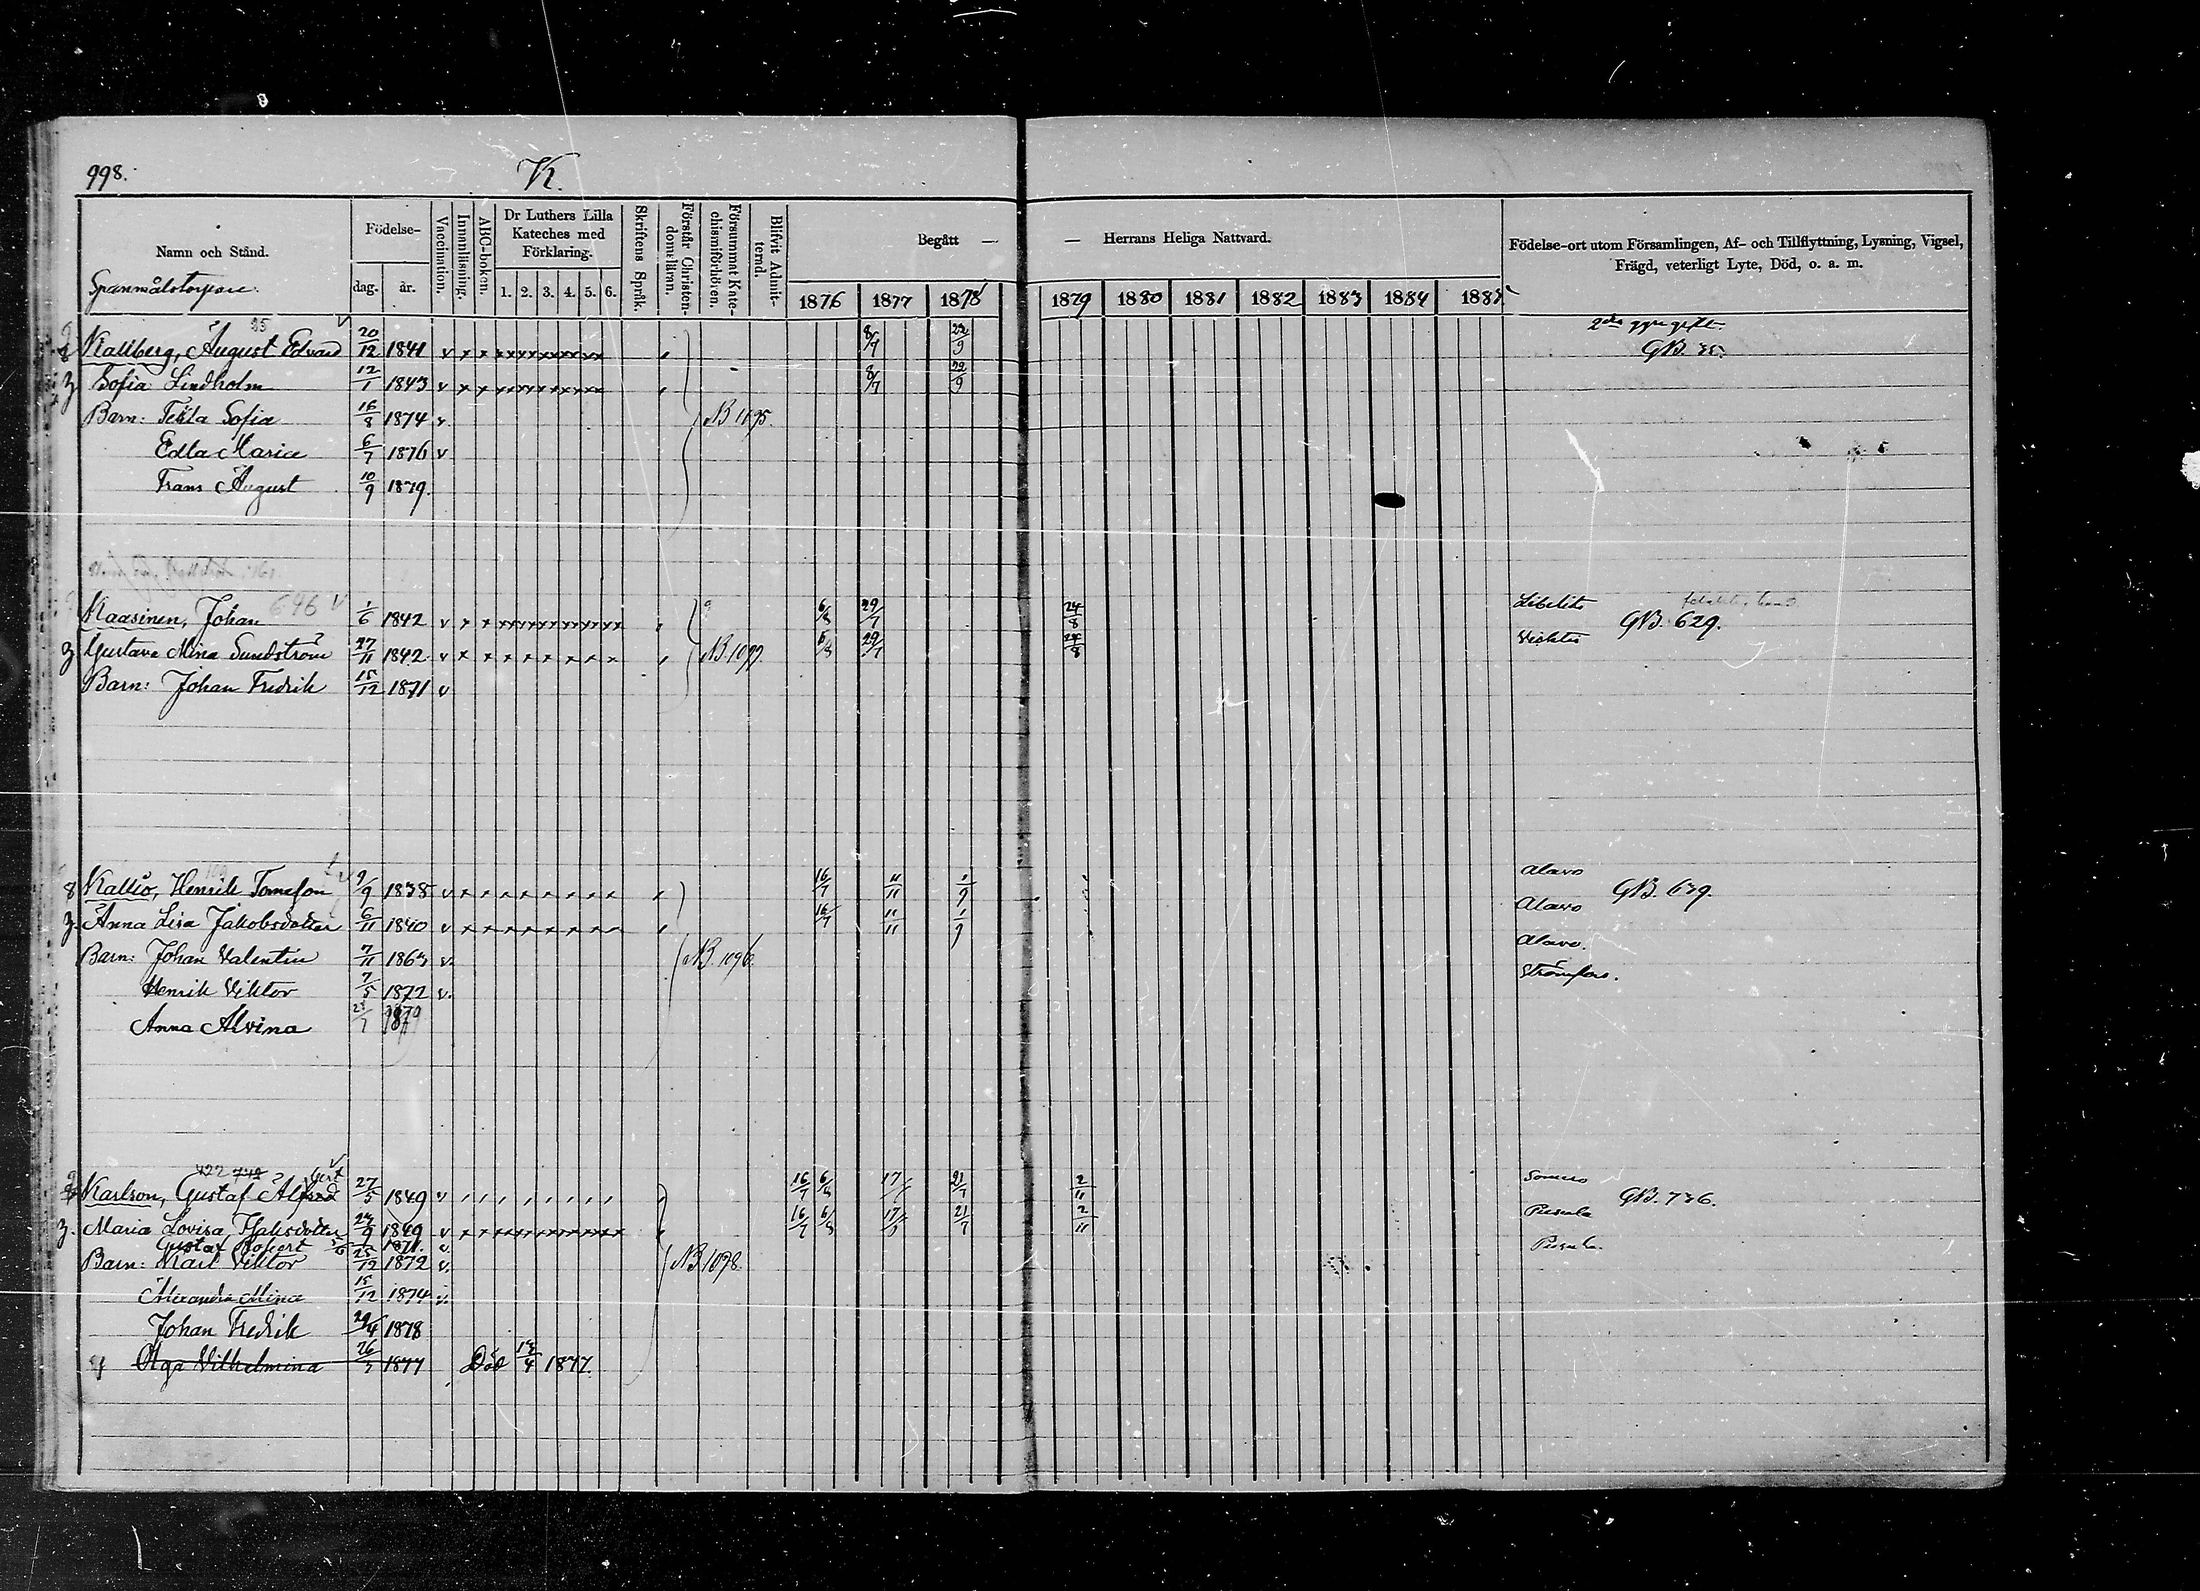 998. K.
Namn och Stånd. Födelse- dag. år. Vaccination. Innanläsning. ABC-boken. Dr Luthers Lilla Kateches med Förklaring. 1. 2. 3. 4. 5. 6. Skriftens Språk. Förstår Christendomslären. Försummat Katechismiförhören. Blifvit Admitterad. Begått — — Herrans Heliga Nattvard. Födelse-ort utom Församlingen, Af- och Tillflyttning, Lysning, Vigsel, Frägd, veterligt Lyte, Död, o. a. m.
1876 1877 1878 1879 1880 1881 1882 1883 1884 1885
Kallberg, August Edvard 20/12 1841 v 8/7 22/9 GB. 35.
Sofia Lindholm 12/1 1843 v 8/7 22/9
Barn: Tekla Sofia 16/8 1874 v. NB 1095.
Edla Maria 6/7 1876 v
Frans August 10/9 1879.
Kaasinen, Johan 646 v 1/6 1842 v 6/8 29/7 24/8 Libelits GB. 629.
Gustava Mina Sundström 27/11 1842 v 6/8 29/7 24/8 Vichtis
NB. 1097.
Barn: Johan Fredrik 15/12 1871 v
8 Kallio, Henrik Tomasson 9/9 1838 v 16/7 11/11 1/9 Alavo GB. 639.
Anna Lisa Jakobsdotter 6/11 1840 v 16/7 11/11 1/9 Alavo
Barn: Johan Valentin 7/11 1863 v. NB. 1096. Alavo.
Henrik Viktor 7/5 1872 v. Strömfors.
Anna Alvina 1879
422 742
Karlson, Gustaf Alfred 27/5 1849 v 16/7 6/8 17/ 21/7 2/11 Somero GB. 736.
Maria Lovisa 1849 v 16/7 6/8 17/ 21/7 2/11 Pusula
Gustaf Robert 1871. v. Pusula.
Barn: Karl Viktor 25/12 1872 v. NB 1098.
Alexandra Mina 15/12 1874 v.
Johan Fredrik 29/4 1878
Olga Vilhelmina 26/3 1877 Död 13/4 1877.